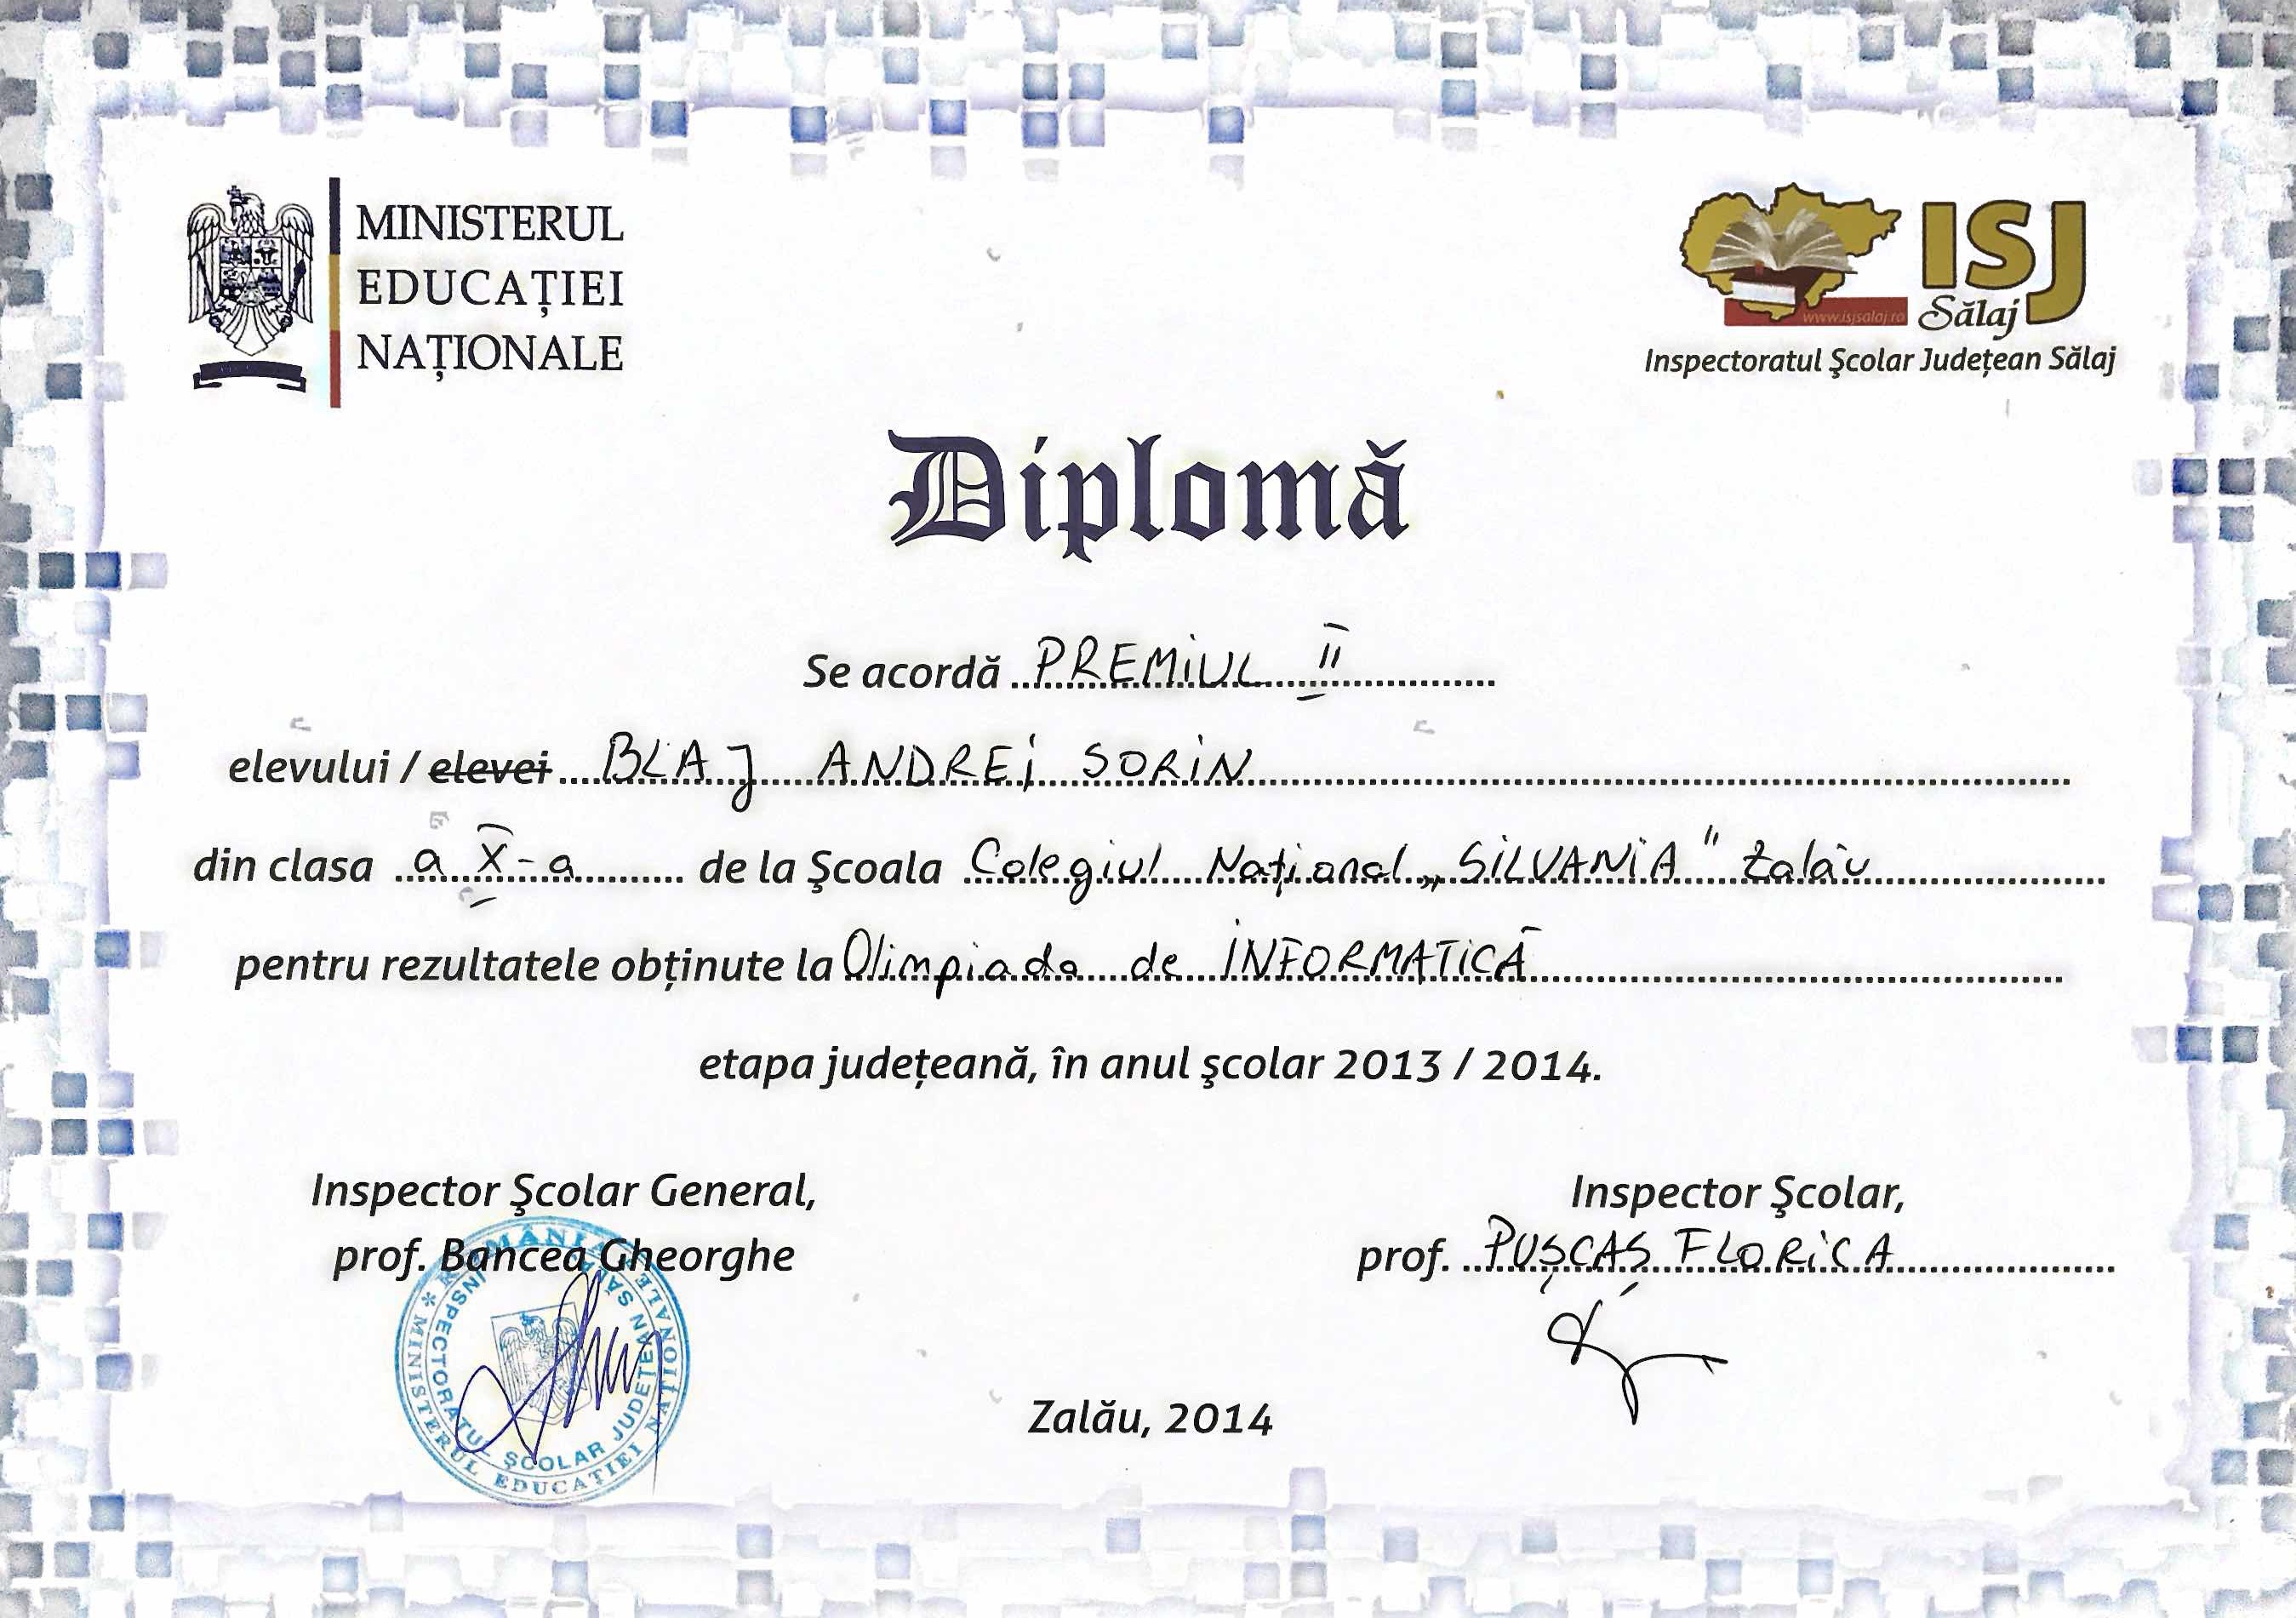 MINISTERUL
EDUCAȚIEI
NAȚIONALE
ISJ
Sălaj
www.isjsalaj.ro
Inspectoratul Şcolar Județean Sălaj
Diplomă
Se acordă PREMIUL II
elevului / elevei BLAJ ANDREI SORIN
din clasa a X-a de la Şcoala Colegiul Național „SILVANIA" Zalău
pentru rezultatele obținute la Olimpiada de INFORMATICĂ
etapa județeană, în anul şcolar 2013 / 2014.
Inspector Şcolar General,
prof. Bancea Gheorghe
Inspector Şcolar,
prof. PUȘCAȘ FLORICA
ROMÂNIA * MINISTERUL EDUCAȚIEI NAȚIONALE
INSPECTORATUL ŞCOLAR JUDEȚEAN SĂLAJ
Zalău, 2014